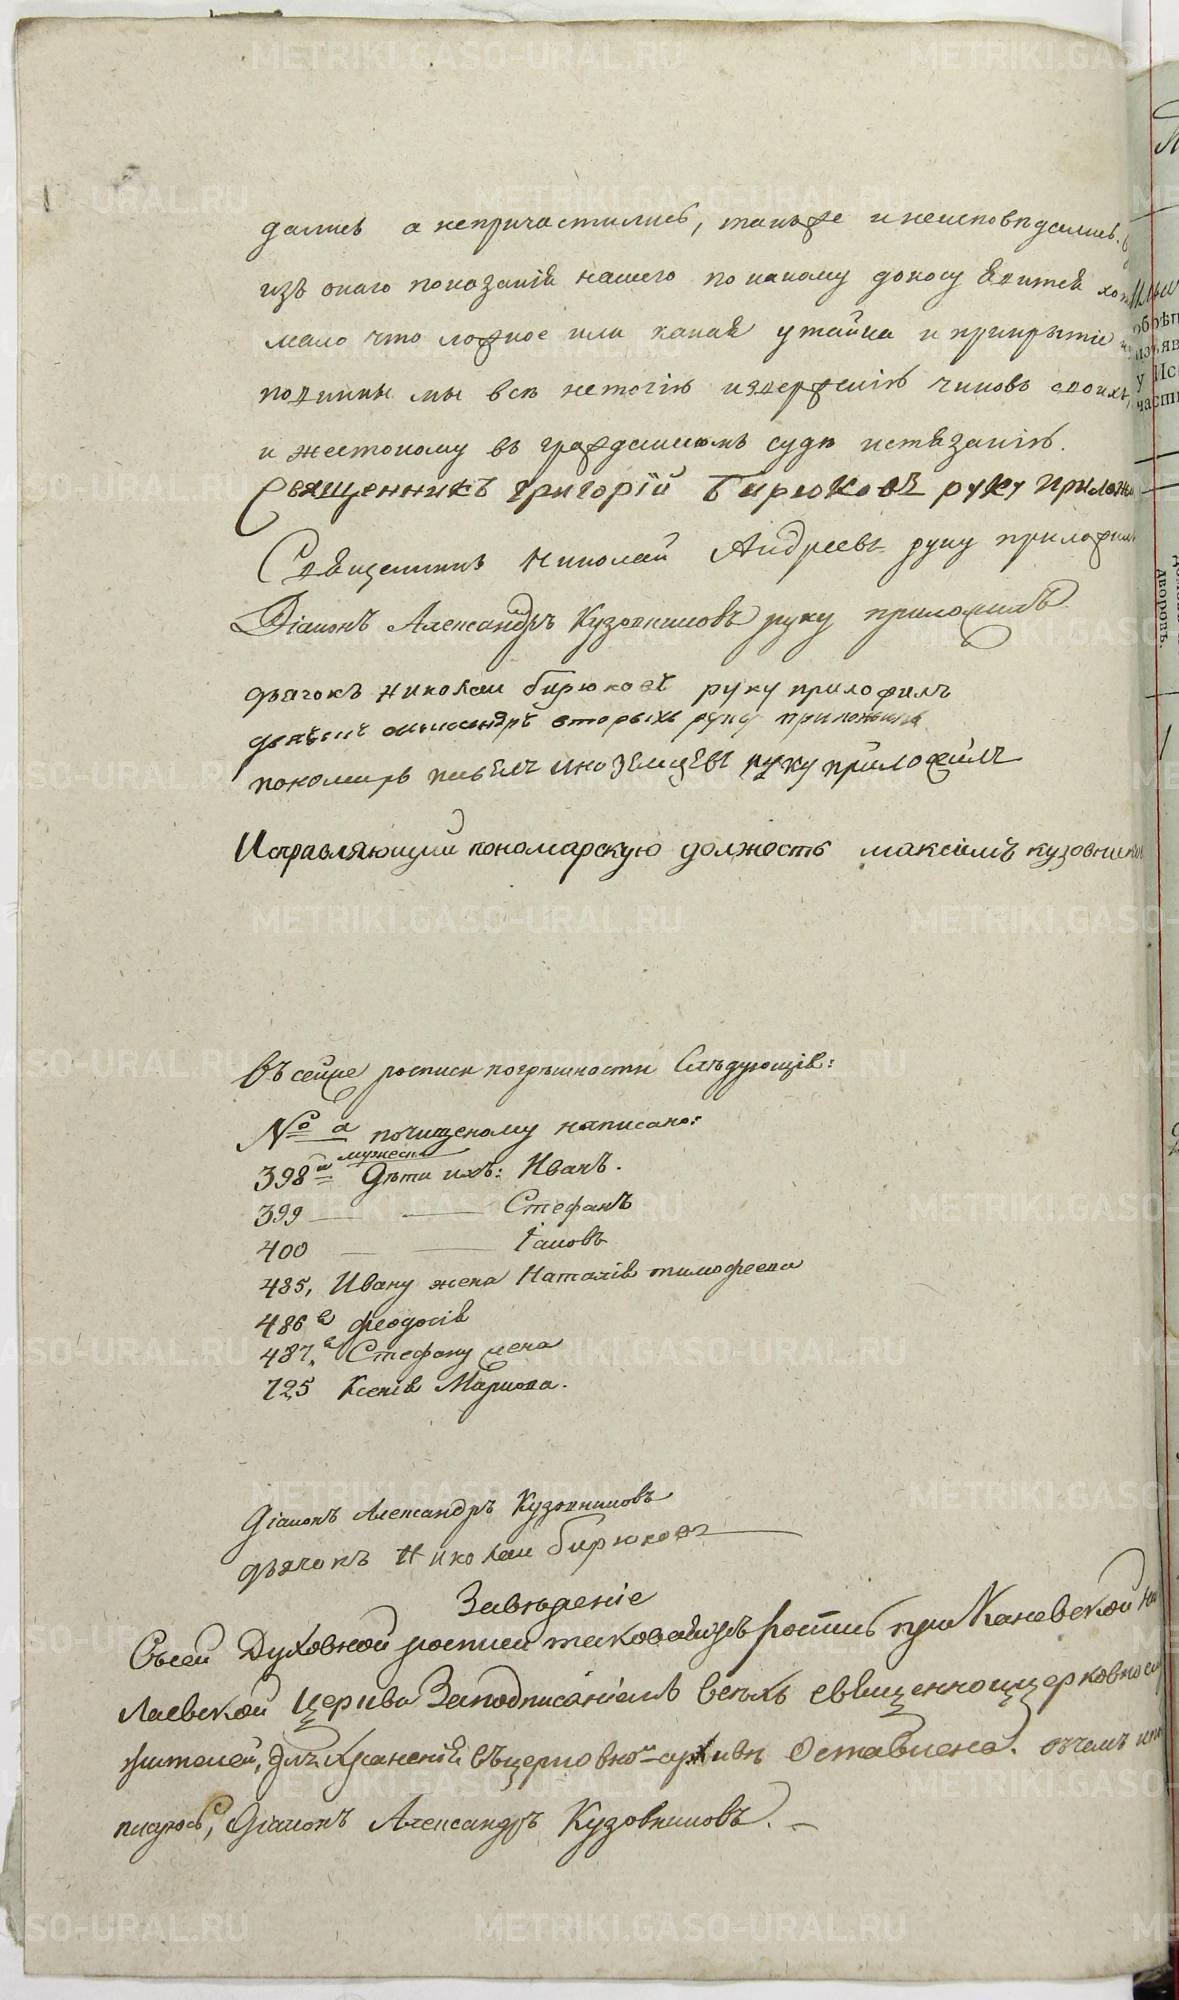 дались а непричастились, такъже и неисповѣдались.
изъ онаго показанія нашего по какому доносу явится хотя
мало что ложное или какая утайка и прикрытіе
повинны мы всѣ неточію извержеnію чиновъ своихъ,
и жестокому въ гражданскомъ судѣ истязанію.
Священникъ Григорій Бирюковъ руку приложи
Священникъ Николай Андреевъ руку приложилъ
Діаконъ Александръ Кузовниковъ руку приложилъ
дьячокъ Николаи бирюковъ руку приложилъ
дьячекъ александръ вторыхъ руку приложилъ
пономарь павелъ иноземцевъ руку приложилъ
Исправляющии пономарскую должность максимъ кузовников
Въ сей же росписи погрѣшности Слѣдующія:
№ а почищеному написано:
398 мужеск Дѣти ихъ: Иванъ.
399 — — Стефанъ
400 — — Іаковъ
485, Ивану жена Наталія тимофеева
486 феодосія
487, Стефану жена
725 Ксенія Маркова.
Діаконъ Александръ Кузовниковъ
дьячокъ Николаи бирюковъ
Завѣденіе
Съсей Духовной росписи таковаяжъ роспись при Каневской Ни
лаевской Церкви Заподписаніемъ всѣхъ священноицерковнослу
жителей, для храненія въцерковной архивѣ Оставлена. вчемъ и
писуюсь, Діаконъ Александръ Кузовниковъ.
METRIKI.GASO-URAL.RU